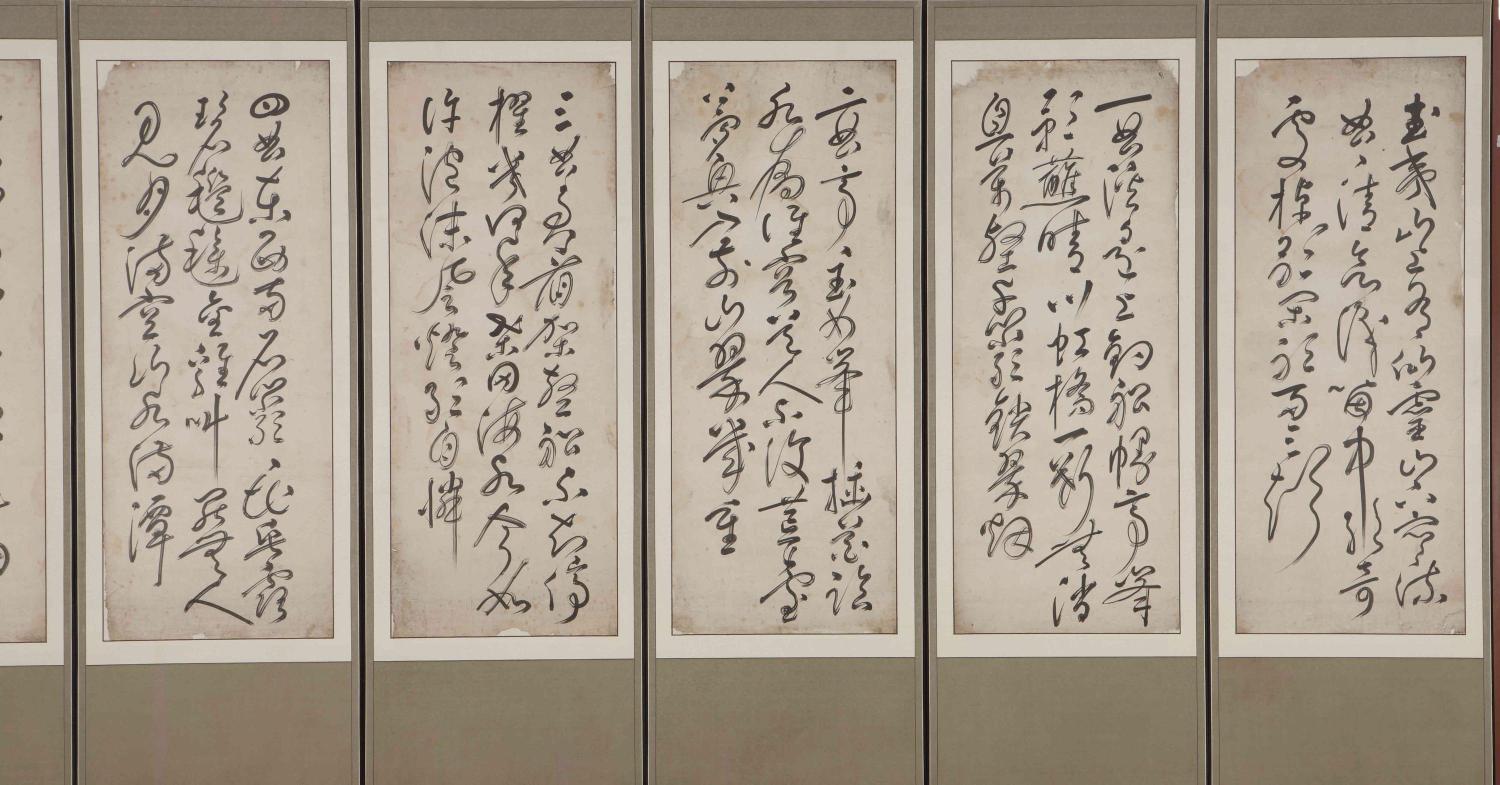 武夷山上有仙靈山下寒流
曲々清欲識個中絶奇
處棹歌閑聽兩三聲
一曲溪邊上釣船幔亭峯
影蘸晴川虹橋一斷無消
息萬壑千巖鎖翠烟
二曲亭々玉女峯插花臨
水爲誰容道人不復荒臺
夢興入前山翠幾重
三曲君看架壑船不知停
櫂幾何年桑田海水今如
許泡沫風燈敢自憐
四曲東西兩石巖々花垂露
碧㲯毿金雞叫罷無人
見月滿空山水滿潭